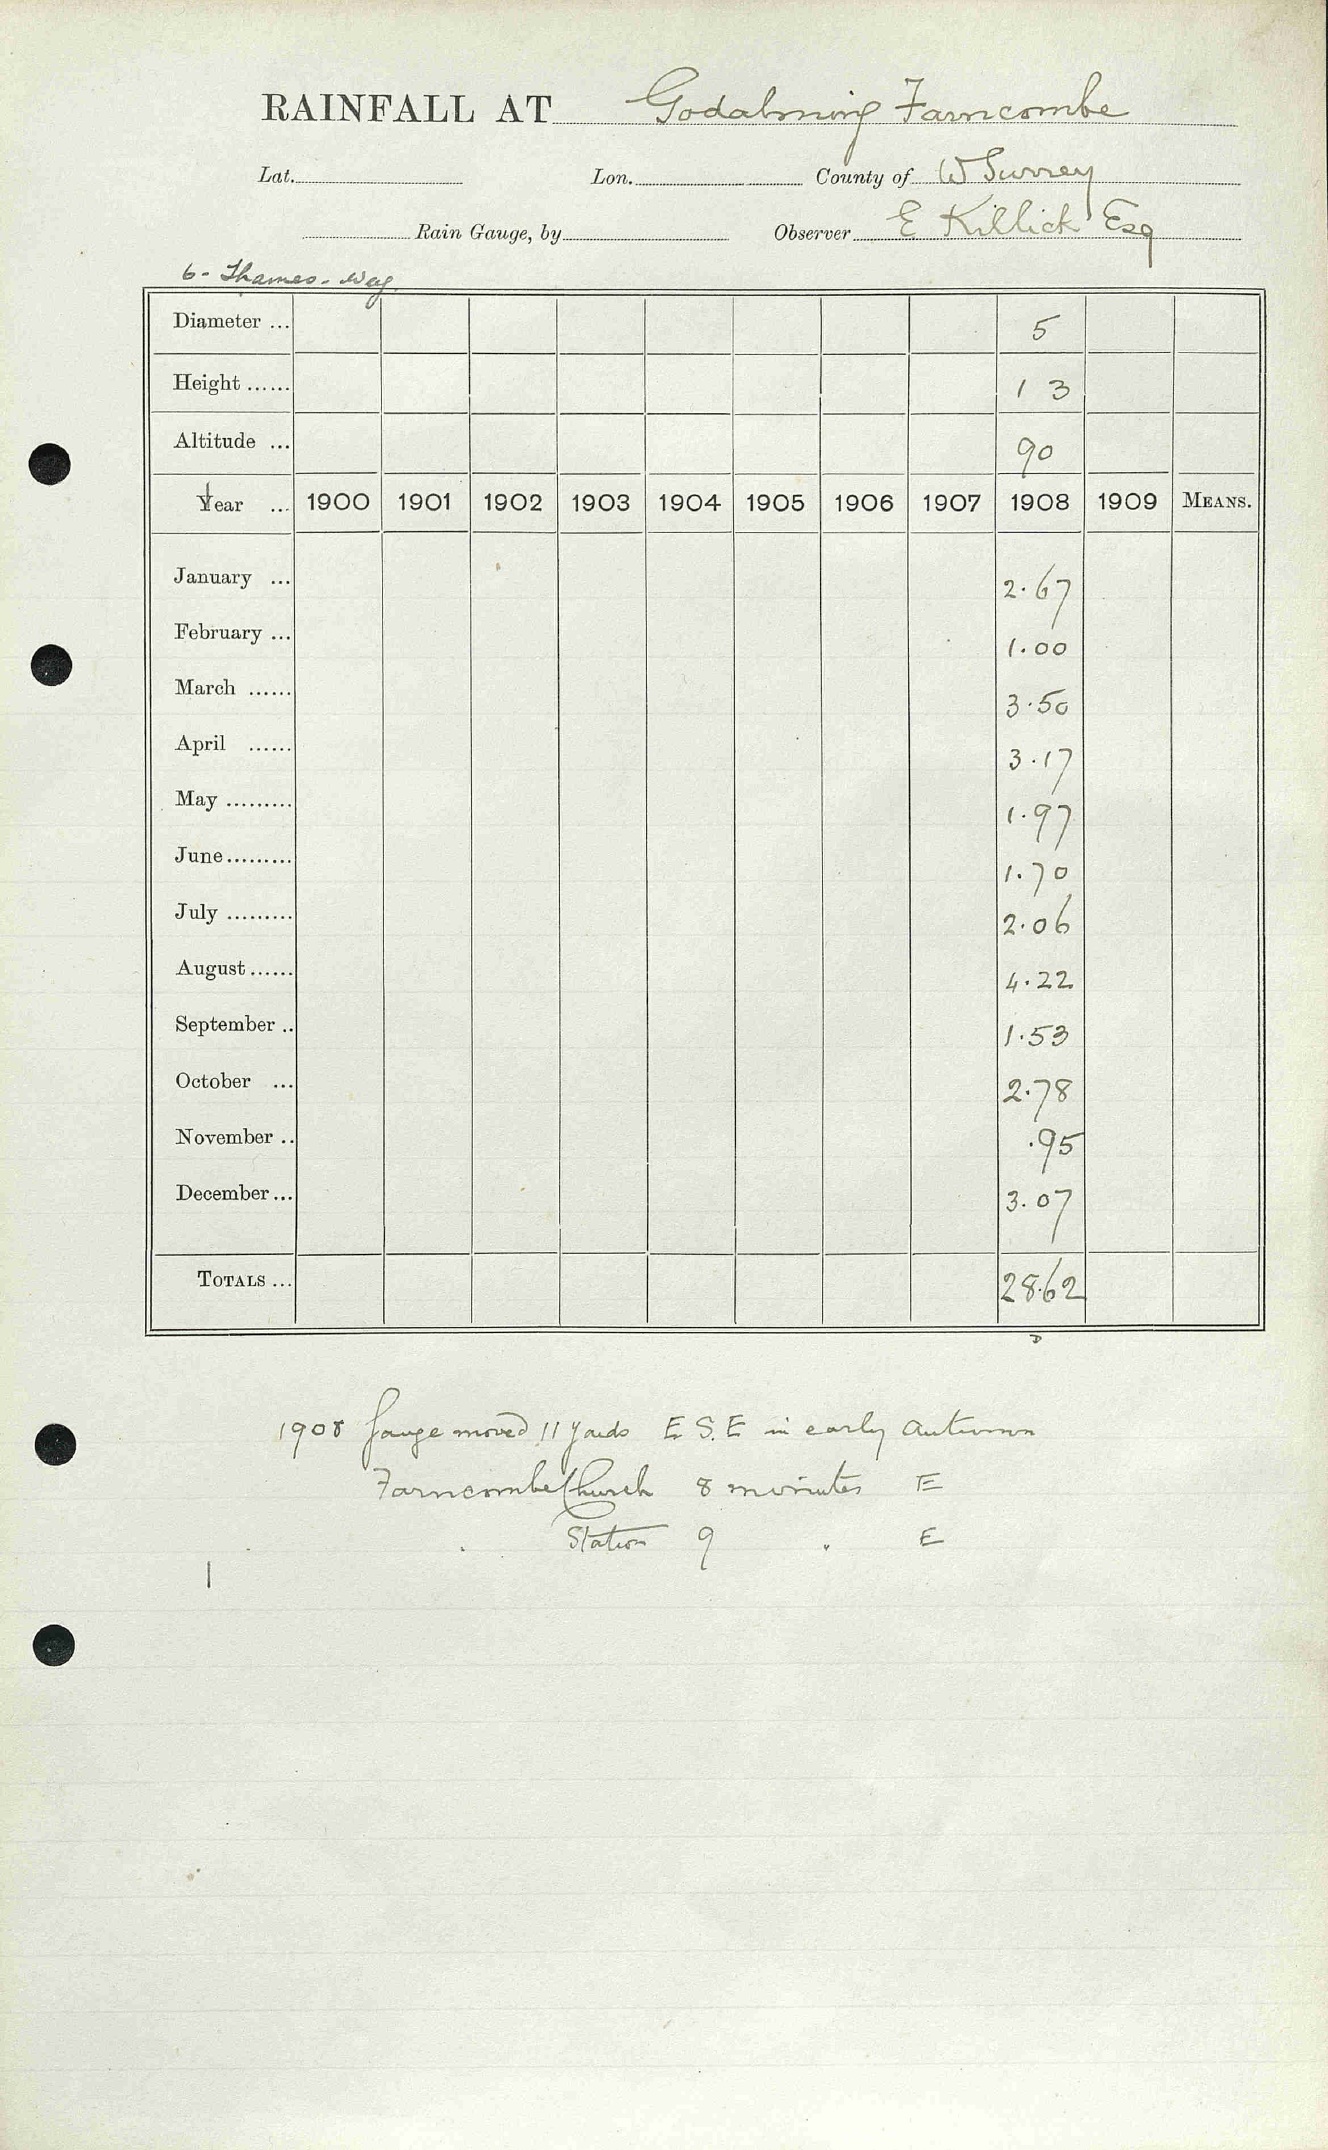 RAINFALL AT Godalming Farncombe
Lat. Lon. County of W Surrey
Rain Gauge, by Observer E Killick Esq
6 - Thames - Wey
Diameter ... 5
Height ...... 1 3
Altitude ... 90
Year ... 1900 1901 1902 1903 1904 1905 1906 1907 1908 1909 MEANS.
January ... 2.67
February ... 1.00
March ...... 3.50
April ...... 3.17
May ......... 1.97
June ......... 1.70
July ......... 2.06
August ...... 4.22
September .. 1.53
October ... 2.78
November .. .95
December ... 3.07
TOTALS ... 28.62
D
1908 Gauge moved 11 yards E.S.E in early autumn
Farncombe Church 8 minutes E
" Station 9 " E